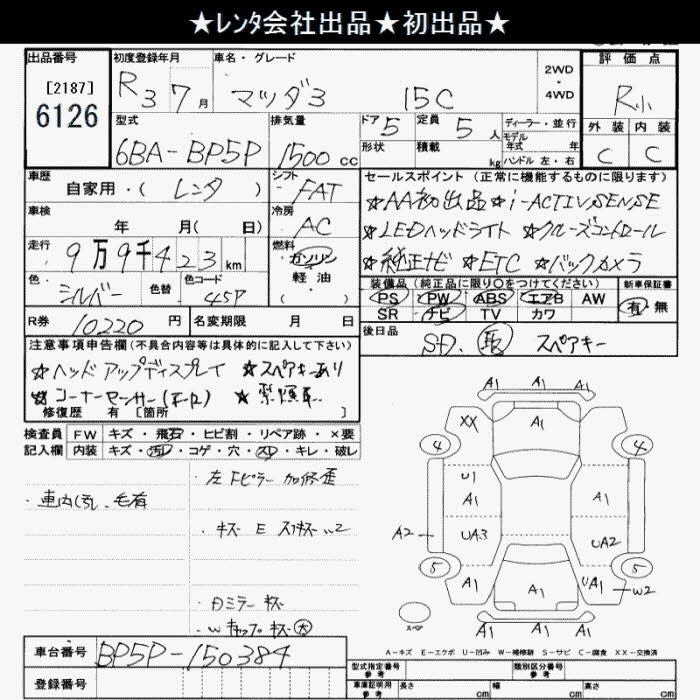 ★レンタ会社出品★初出品★
出品番号 初度登録年月 車名・グレード 評価点
[2187]
6126
R3 7月 マツダ3 15C 2WD・4WD R小
型式 排気量 ドア 5 定員 5人 ディーラー・並行
モデル年式 年
外装 内装
6BA-BP5P 1500cc 形状 積載 kg ハンドル 左・右 C C
車歴 シフト セールスポイント(正常に機能するものに限ります)
自家用・(レンタ) FAT ★AA初出品 ★i-ACTIVSENSE
車検 冷房
年 月(日) AC ★LEDヘッドライト ★クルーズコントロール
走行 燃料
9万9千423km ガソリン ★純正ナビ ★ETC ★バックカメラ
軽油
( )
色 色替 色コード 装備品(純正品に限り○をつけてください) 新車保証書
シルバー 45P PS PW ABS エアB AW 有・無
SR ナビ TV カワ
R券 10220円 名変期限 月 日 後日品 SD. 取 スペアキー
注意事項申告欄(不具合内容等は具体的に記入して下さい)
★ヘッドアップディスプレイ ★スペアキーあり
★コーナーセンサー(F・R) ★禁煙車
修復歴 有[箇所 ]
検査員 FW キズ・飛石・ヒビ割・リペア跡・×要
記入欄 内装 キズ・汚れ・コゲ・穴・スレ・キレ・破レ
左Fピラー 加修歪
・車内汚れ、毛有
・キズ E スリキズ W2
・白ミラーキズ
・Wキャップキズ大
A1 A1 A1
XX A1
4 4
U1
A1 A1
A2 UA3 UA2
5 5
A1 A1 UA1 W2
スペア A1 A1 A1
A-キズ E-エクボ U-凹み W-補修跡 S-サビ C-腐食 XX-交換済
車台番号 BP5P-150384
登録番号
型式指定番号 参考 類別区分番号 参考
車庫証明用 参考 長さ cm 幅 cm 高さ cm